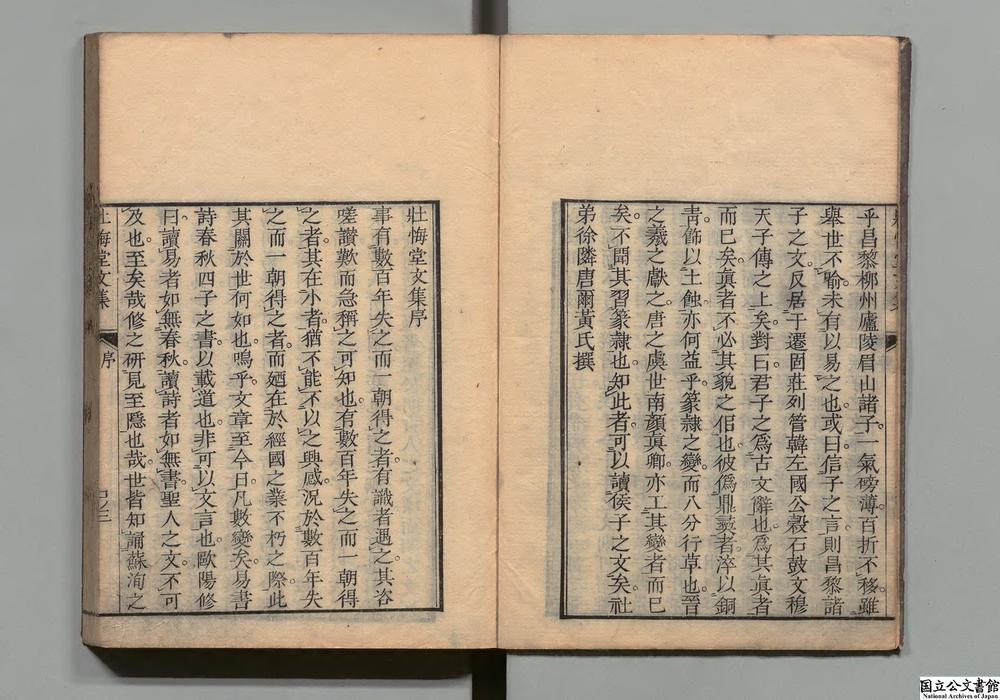 乎昌黎柳州廬陵眉山諸子一氣磅薄百折不移雖
舉世不喻未有以易之也或曰信子之言則昌黎諸
子之文反居于遷固莊列管韓左國公穀石鼓文穆
天子傳之上矣對曰君子之爲古文辭也爲其眞者
而已矣眞者不必其貌之佀也彼僞鼎彛者淬以銅
靑飾以土蝕亦何益乎篆隷之變而八分行草也晉
之羲之獻之唐之虞世南顔眞卿亦工其變者而已
矣不聞其習篆隷也知此者可以讀侯子之文矣社
弟徐隣唐爾黃氏撰
壯悔堂文集序
事有數百年失之而一朝得之者有識者遇之其咨
嗟讚歎而急稱之可知也有數百年失之而一朝得
之者其在小者猶不能不以之興感況於數百年失
之而一朝得之者而廼在於經國之業不朽之際此
其關於世何如也嗚乎文章至今日凡數變矣易書
詩春秋四子之書以載道也非可以文言也歐陽修
曰讀易者如無春秋讀詩者如無書聖人之文不可
及也至矣哉修之硏見至隱也哉世皆知誦蘇洵之
壯悔堂文集
序
国立公文書館
National Archives of Japan